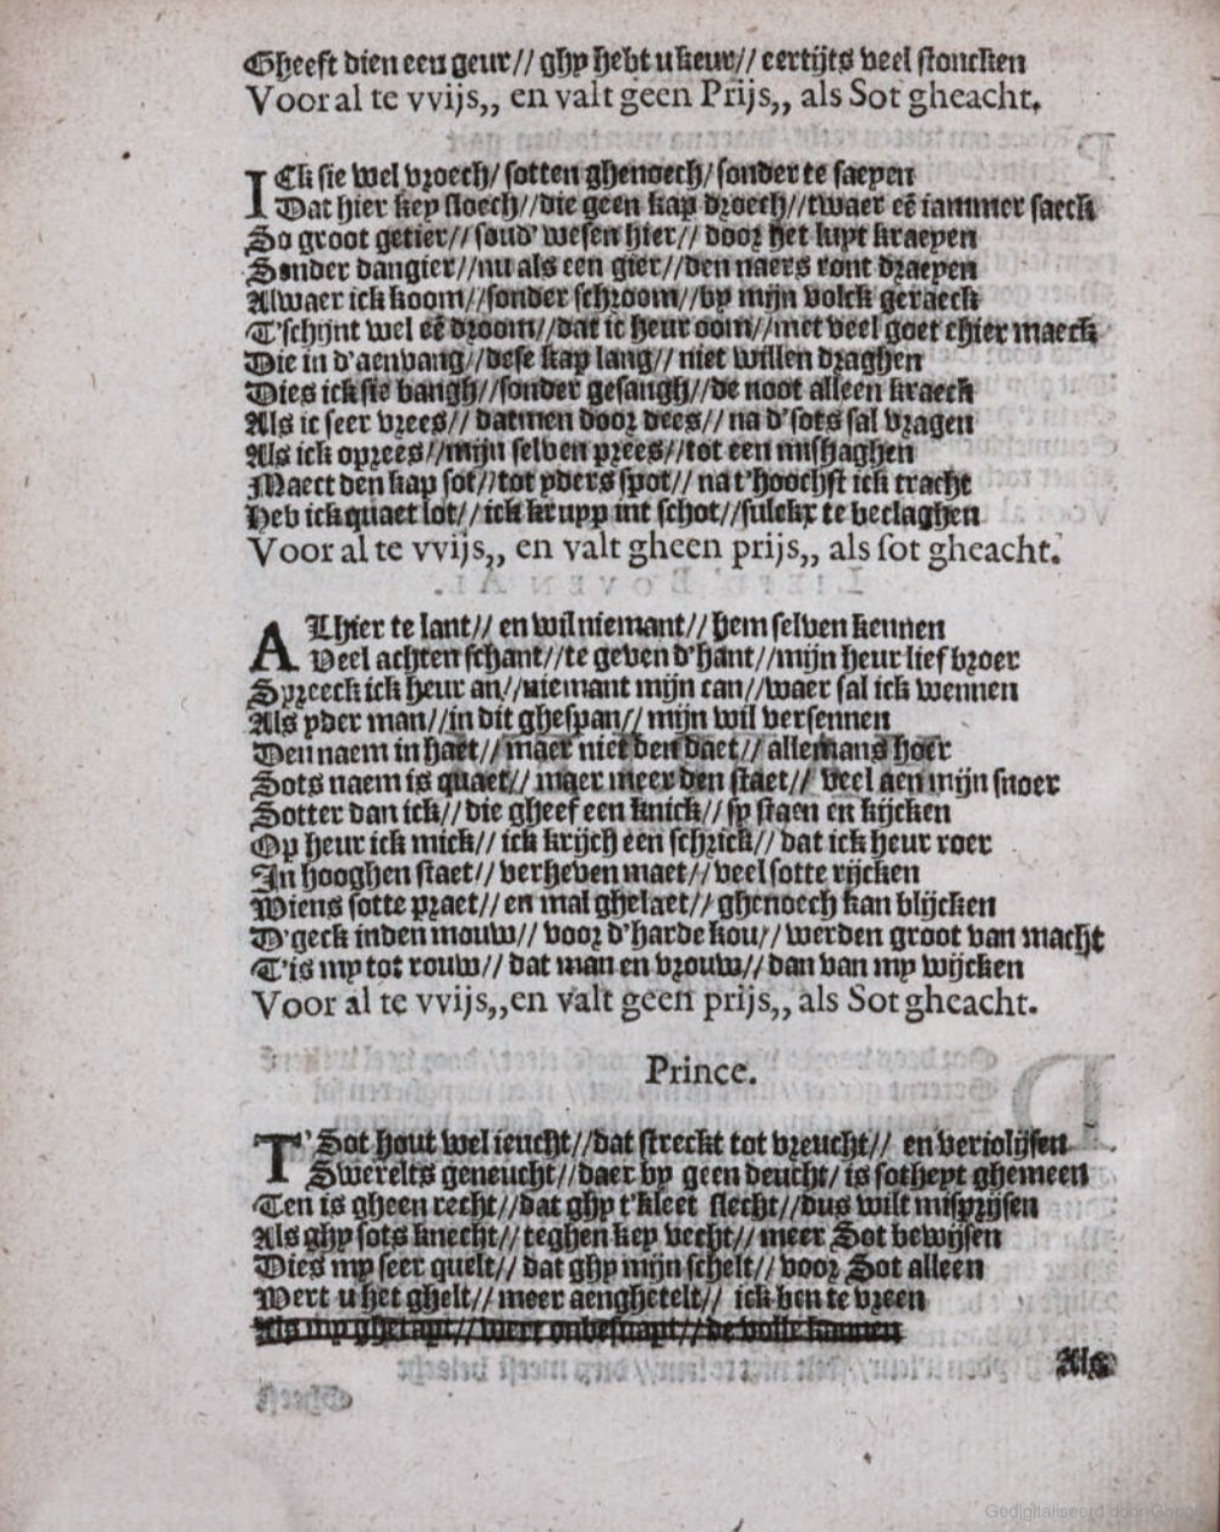 Gheeft dien een geur// ghy hebt u keur// eertijts veel stoncken
Voor al te vvijs,, en valt geen Prijs,, als Sot gheacht.
ICk sie wel vroech/ sotten ghenoech/ sonder te saeyen
Dat hier key sloech//die geen kap droech//twaer eẽ iammer saeck
So groot getier// soud' wesen hier// door het luyt kraeyen
Sonder dangier//nu als een gier//den naers ront draeyen
Alwaer ick koom//sonder schroom//by mijn volck geraeck
T'schijnt wel eẽ droom//dat ic heur oom//met veel goet chier maeck
Die in d'aenvang//dese kap lang// niet willen draghen
Dies ick sie bangh//sonder gesangh//de noot alleen kraeck
Als ic seer vrees// datmen door dees// na d'sots sal vragen
Als ick oprees//mijn selven prees//tot een mishaghen
Maect den kap sot//tot yders spot// na t'hoochst ick tracht
Heb ick quaet lot// ick kruyp int schot//sulckx te beclaghen
Voor al te vvijs,, en valt gheen prijs,, als sot gheacht.
ALhier te lant// en wil niemant// hem selven kennen
Veel achten schant//te geven d'hant//mijn heur lief broer
Spreeck ick heur an//niemant mijn can//waer sal ick wennen
Als yder man//in dit ghespan// mijn wil versennen
Den naem in haet// maer niet den daet// allemans hoer
Sots naem is quaet// maer meer den staet// veel aen mijn snoer
Sotter dan ick// die gheef een knick// sy staen en kijcken
Op heur ick mick// ick krijch een schrick// dat ick heur roer
In hooghen staet// verheven maet// veel sotte rijcken
Wiens sotte praet// en mal ghelaet// ghenoech kan blijcken
D'geck inden mouw// voor d'harde kou// werden groot van macht
T'is my tot rouw// dat man en vrouw// dan van my wijcken
Voor al te vvijs,,en valt geen prijs,, als Sot gheacht.
Prince.
T'Sot hout wel ieucht//dat streckt tot vreucht// en veriolijsen
Swerelts geneucht//daer by geen deucht/ is sotheyt ghemeen
Ten is gheen recht//dat ghy t'kleet slecht//dus wilt misprijsen
Als ghy sots knecht// teghen key vecht// meer Sot bewijsen
Dies my seer quelt// dat ghy mijn schelt// voor Sot alleen
Wert u het ghelt// meer aenghetelt// ick ben te vreen
Als